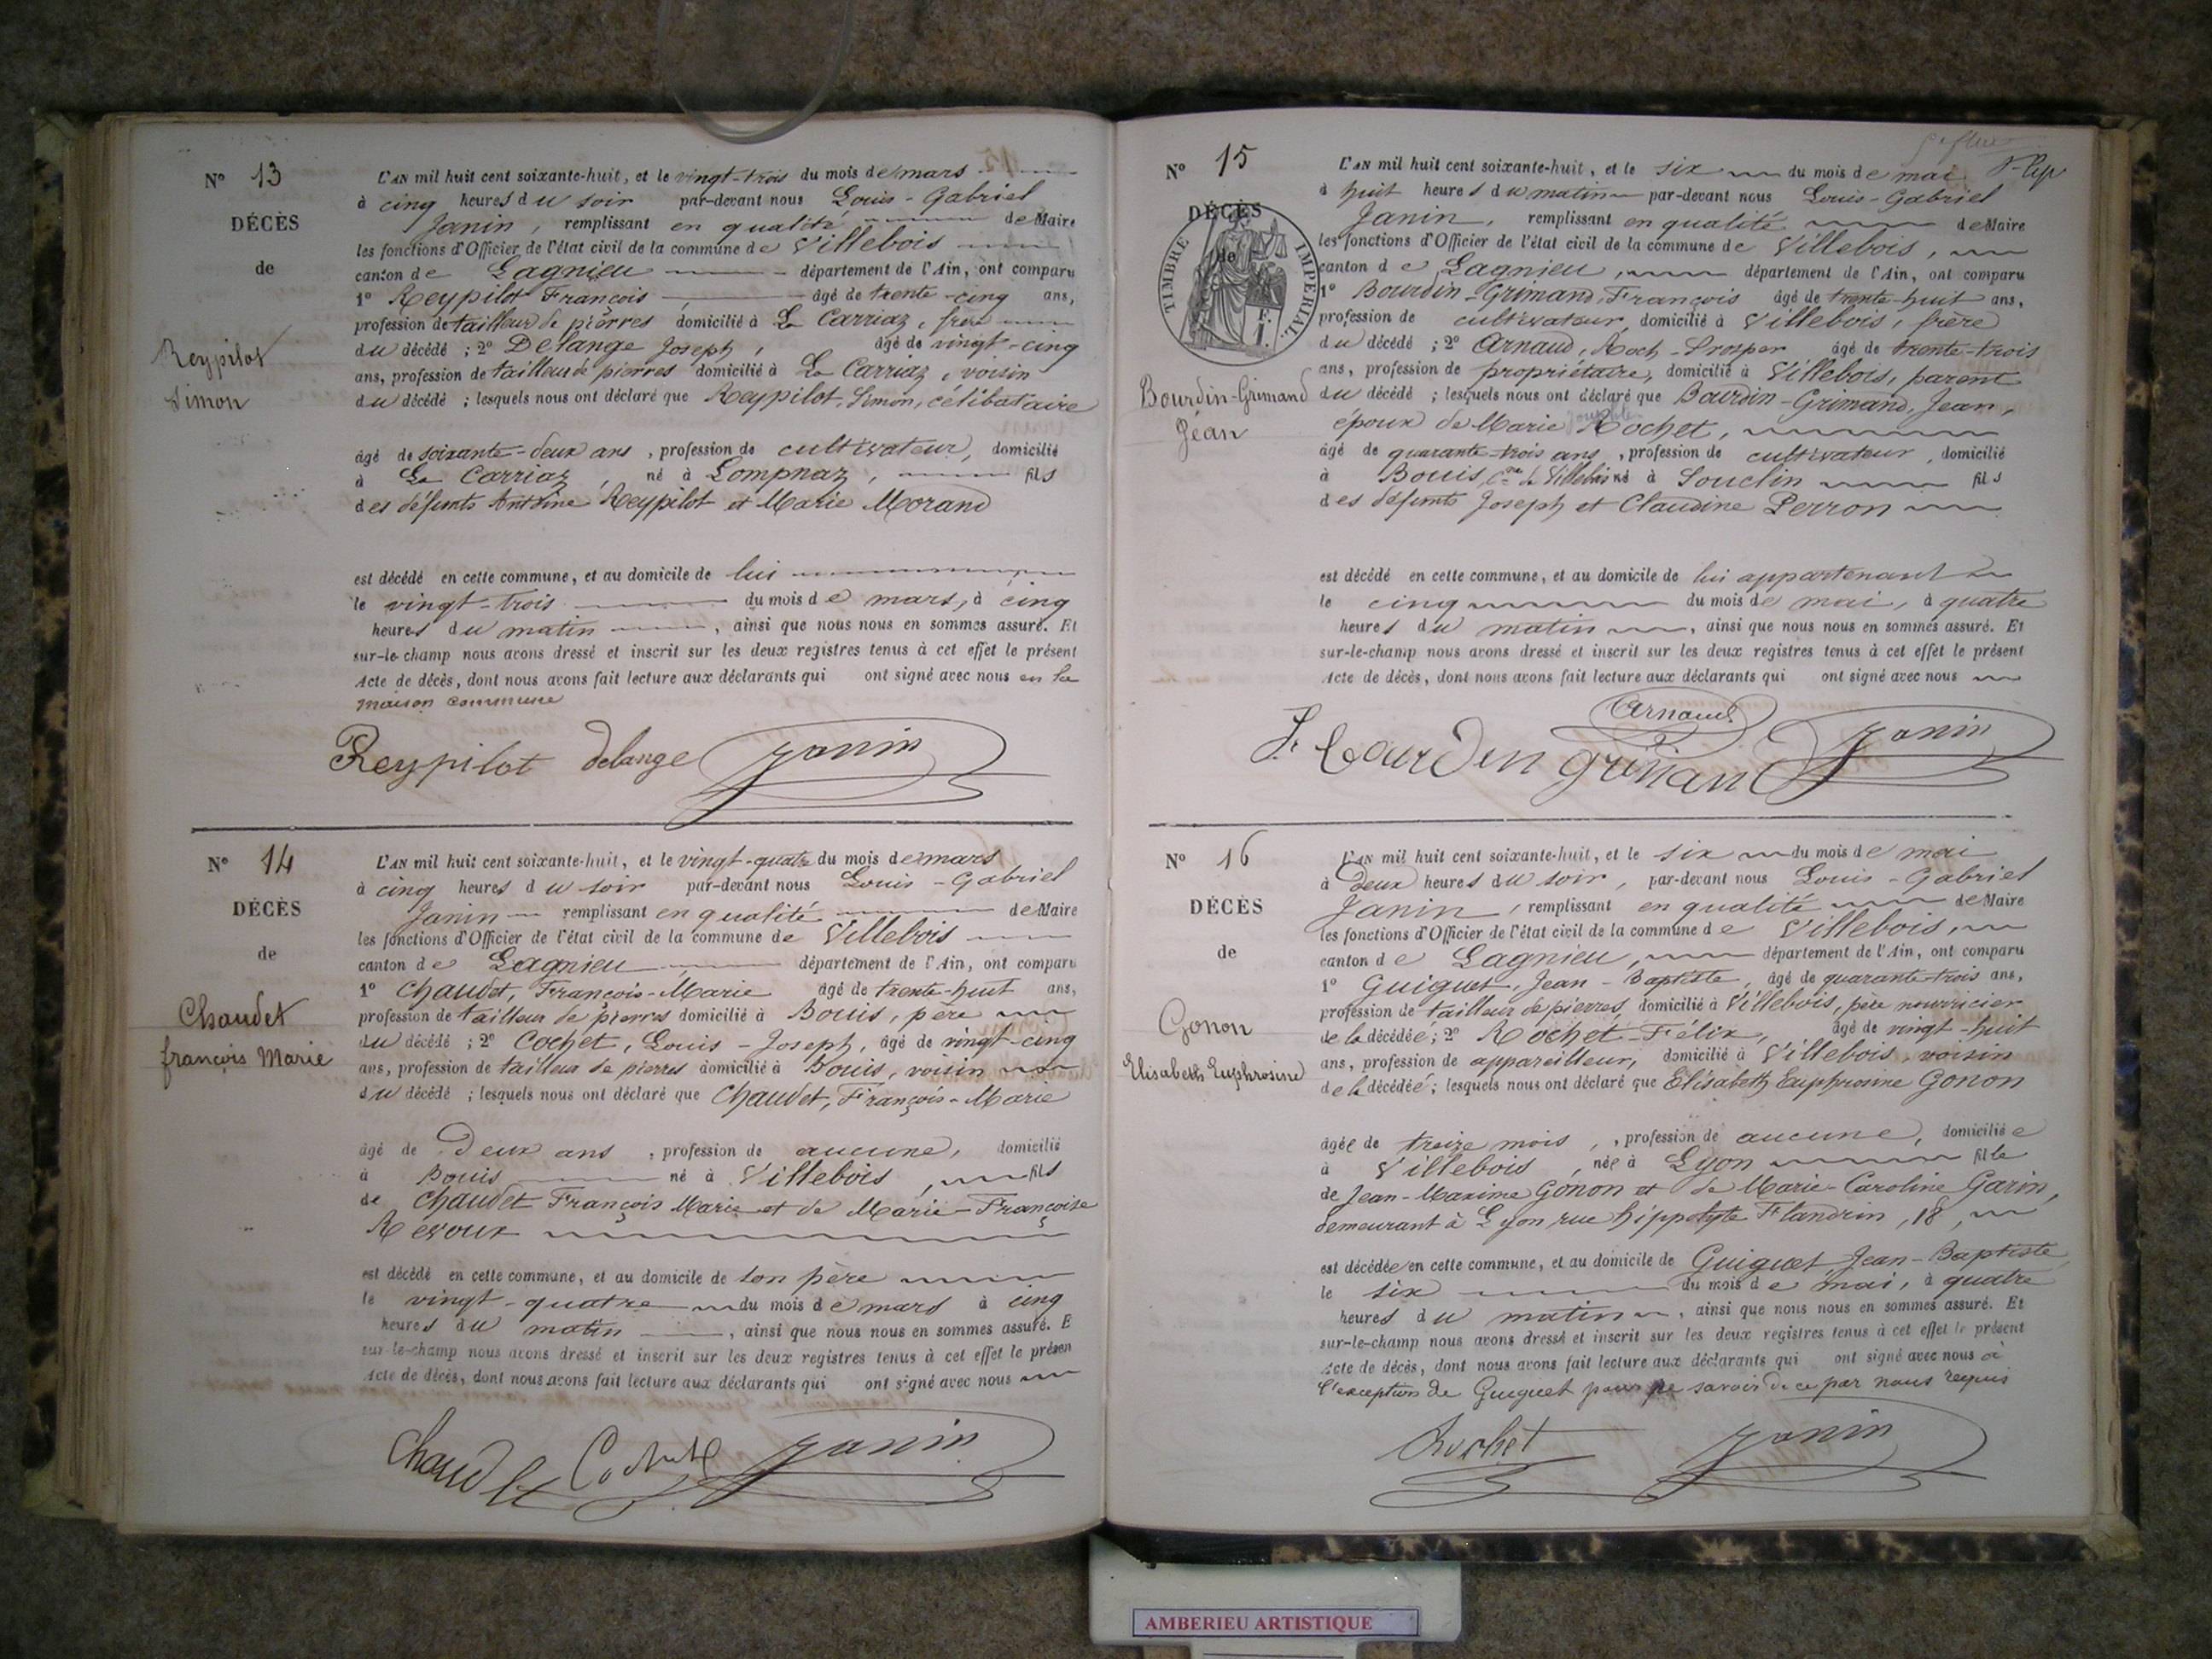 N° 13
DÉCÈS
de
Reypilot
Simon
L'AN mil huit cent soixante-huit, et le vingt-trois du mois de mars
à cinq heures du soir par-devant nous Louis-Gabriel
Janin, remplissant en qualité de Maire
les fonctions d'Officier de l'état civil de la commune de Villebois
canton de Lagnieu département de l'Ain, ont comparu
1° Reypilot François âgé de trente-cinq ans,
profession de tailleur de pierres domicilié à La Carriaz, frère
du décédé ; 2° Delange Joseph, âgé de vingt-cinq
ans, profession de tailleur de pierres domicilié à La Carriaz, voisin
du décédé ; lesquels nous ont déclaré que Reypilot, Simon, célibataire
âgé de soixante-deux ans, profession de cultivateur, domicilié
à La Carriaz, né à Lompnaz, fils
des défunts Antoine Reypilot et Marie Morand
est décédé en cette commune, et au domicile de lui
le vingt-trois du mois de mars, à cinq
heures du matin, ainsi que nous nous en sommes assuré. Et
sur-le-champ nous avons dressé et inscrit sur les deux registres tenus à cet effet le présent
Acte de décès, dont nous avons fait lecture aux déclarants qui ont signé avec nous en la
maison commune
Reypilot delange Janin
N° 14
DÉCÈS
de
Chaudet
françois Marie
L'AN mil huit cent soixante-huit, et le vingt-quatre du mois de mars
à cinq heures du soir par-devant nous Louis-Gabriel
Janin remplissant en qualité de Maire
les fonctions d'Officier de l'état civil de la commune de Villebois
canton de Lagnieu département de l'Ain, ont comparu
1° Chaudet, François-Marie âgé de trente-huit ans,
profession de tailleur de pierres domicilié à Bouis, père
du décédé ; 2° Cochet, Louis-Joseph, âgé de vingt-cinq
ans, profession de tailleur de pierres domicilié à Bouis, voisin
du décédé ; lesquels nous ont déclaré que Chaudet, François-Marie
âgé de Deux ans, profession de aucune, domicilié
à Bouis né à Villebois, fils
de Chaudet François Marie et de Marie-Françoise
Revoux
est décédé en cette commune, et au domicile de son père
le vingt-quatre du mois de mars à cinq
heures du matin, ainsi que nous nous en sommes assuré. E
sur-le-champ nous avons dressé et inscrit sur les deux registres tenus à cet effet le présen
Acte de décès, dont nous avons fait lecture aux déclarants qui ont signé avec nous
Chaudet Cochet Janin
N° 15
DÉCÈS
de
TIMBRE IMPERIAL
Bourdin-Grimand
Jean
L'AN mil huit cent soixante-huit, et le six du mois de mai
à huit heures du matin par-devant nous Louis-Gabriel
Janin, remplissant en qualité de Maire
les fonctions d'Officier de l'état civil de la commune de Villebois,
canton de Lagnieu, département de l'Ain, ont comparu
1° Bourdin-Grimand, François âgé de trente-huit ans,
profession de cultivateur, domicilié à Villebois, frère
du décédé ; 2° Arnaud, Roch-Prosper âgé de trente-trois
ans, profession de propriétaire, domicilié à Villebois, parent
du décédé ; lesquels nous ont déclaré que Bourdin-Grimand, Jean,
époux de Marie Rochet,
âgé de quarante-trois ans, profession de cultivateur, domicilié
à Bouis, Cne de Villebois né à Souclin fils
des défunts Joseph et Claudine Perron
est décédé en cette commune, et au domicile de lui appartenant
le cinq du mois de mai, à quatre
heures du matin, ainsi que nous nous en sommes assuré. Et
sur-le-champ nous avons dressé et inscrit sur les deux registres tenus à cet effet le présent
Acte de décès, dont nous avons fait lecture aux déclarants qui ont signé avec nous
Arnaud
F. bourdin griman Janin
N° 16
DÉCÈS
de
Gonon
Elisabeth Euphrosine
L'AN mil huit cent soixante-huit, et le six du mois de mai
à Deux heures du soir, par-devant nous Louis-Gabriel
Janin, remplissant en qualité de Maire
les fonctions d'Officier de l'état civil de la commune de Villebois,
canton de Lagnieu, département de l'Ain, ont comparu
1° Guiguet, Jean-Baptiste, âgé de quarante-trois ans,
profession de tailleur de pierres, domicilié à Villebois, père nourricier
de la décédée ; 2° Rochet-Félix, âgé de vingt-huit
ans, profession de appareilleur, domicilié à Villebois, voisin
de la décédée ; lesquels nous ont déclaré que Elisabeth Euphrosine Gonon
âgée de treize mois, profession de aucune, domiciliée
à Villebois, née à Lyon fille
de Jean-Maxime Gonon et de Marie-Caroline Garin,
demeurant à Lyon rue hippolyte Flandrin, 18,
est décédée en cette commune, et au domicile de Guiguet Jean-Baptiste
le six du mois de mai, à quatre
heures du matin, ainsi que nous nous en sommes assuré. Et
sur-le-champ nous avons dressé et inscrit sur les deux registres tenus à cet effet le présent
Acte de décès, dont nous avons fait lecture aux déclarants qui ont signé avec nous à
l'exception de Guiguet pour ne savoir de ce par nous requis
Rochet Janin
AMBERIEU ARTISTIQUE